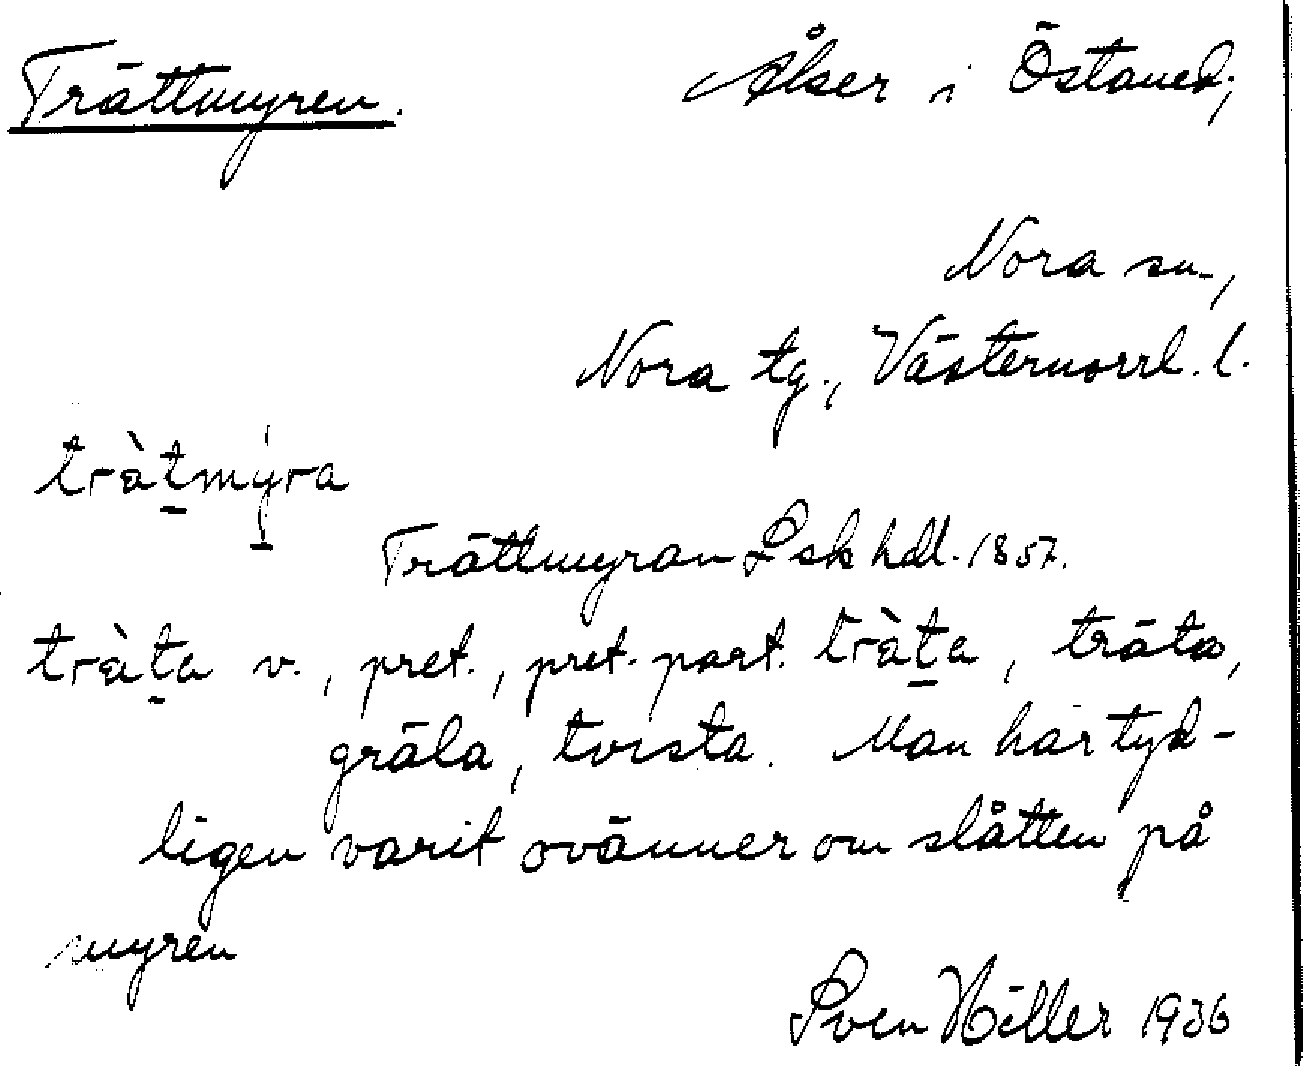 Trättmyren.
Ålser i Östaned;
Nora sn.,
Nora tg., Västernorrl. l.
trằt̠mýra
Trättmyran Lsk hdl. 1857.
trằt̠a v., pret., pret. part. trằt̠a, träta,
gräla, tvista. Man har tyd-
ligen varit ovänner om slåtten på
myren
Sven Hiller 1936